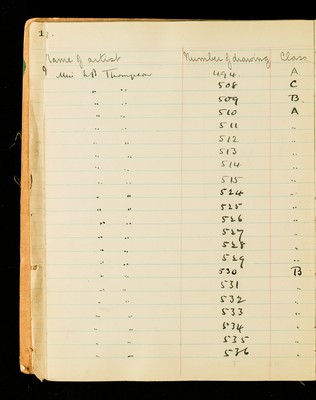 12.
Name of artist Number of drawing Class
Miss Thompson 494. A
" " 508 C
" " 509 B
" " 510 A
" " 511 "
" " 512 "
" " 513 "
" " 514 "
" " 515 "
" " 524 "
" " 525 "
" " 526 "
" " 527 "
" " 528 "
" " 529 "
" " 530 B
" " 531 "
" " 532 "
" " 533 "
" " 534 "
" " 535 "
" " 536 "